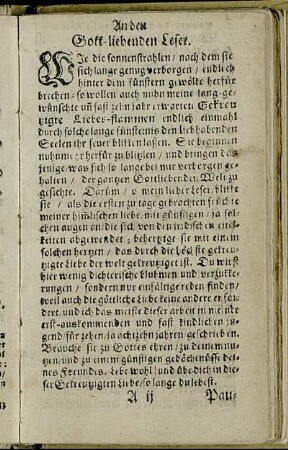 An den
Gott-liebenden Leser.
WIe die sonnenstrahlen / nach dem sie
sich lange genug verborgen / endlich
hinter dem finstern gewölke herfür
brechen: so wollen auch nuhn meine lang-ge-
wünschte uñ fast zehn jahr erwartete Gekreu-
tzigte Liebes-flammen endlich einmahl
durch solche lange finsternis den liebhabenden
Seelen ihr feuer blikken lassen. Sie beginnen
nuhnmehr herfür zu blitzen / und bringen das
jenige / was sich so lange bei mir verborgen ge-
halten / der gantzen Gottliebenden Welt zu
gesichte. Darüm / o mein lieber Leser / blikke
sie / als die ersten zu tage gebrachten früchte
meiner himlischen liebe mit günstigen / ja sol-
chen augen an / die sich von den irdischen eitel-
keiten abgewendet; behertzige sie mit einem
solchen hertzen / das durch die höchste gekreu-
tzigte Liebe der welt gekreutziget ist. Du wirst
hier wenig dichterische bluhmen und verzukke-
rungen / sondern nur einfältige reden finden /
weil auch die göttliche Liebe keine andere er for-
dert, und ich das meiste dieser arbeit in meiner
erst-auskommenden und fast kindlichen ju-
gend / für zehen / ja acht zehn jahren geschrieben.
Brauche sie zu Gottes ehren / zu deinem nu-
tzen, und zu einem günstigen gedöchtnüsse dei-
nes Freundes. Lebe wohl / und übe dich in die-
ser Gekreutzigten Liebe / so lange du lebest.
A ij Pau-